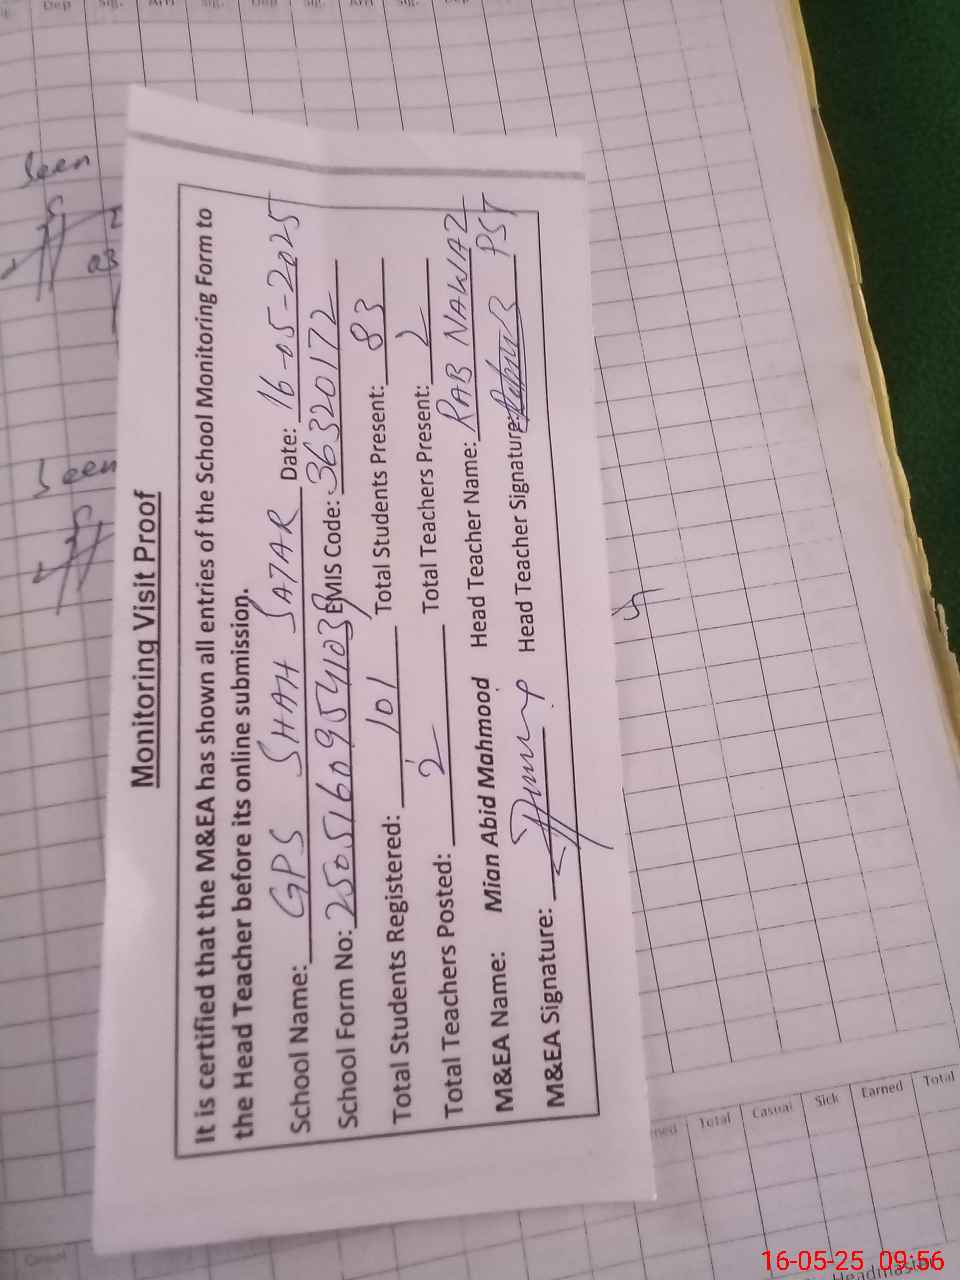 Monitoring Visit Proof
It is certified that the M&EA has shown all entries of the School Monitoring Form to
the Head Teacher before its online submission.
School Name: GPS SHAH SATAR Date: 16-05-2025
School Form No: 25051609541039 EMIS Code: 36320172
Total Students Registered: 101 Total Students Present: 83
Total Teachers Posted: 2 Total Teachers Present: 2
M&EA Name: Mian Abid Mahmood Head Teacher Name: RAB NAWAZ
M&EA Signature: Head Teacher Signature: PST
Seen
Seen
Dep Sig. Arri Sig. Dep Sig. Arri Sig. Dep
Total Casual Sick Earned Total
Casual
16-05-25 09:56